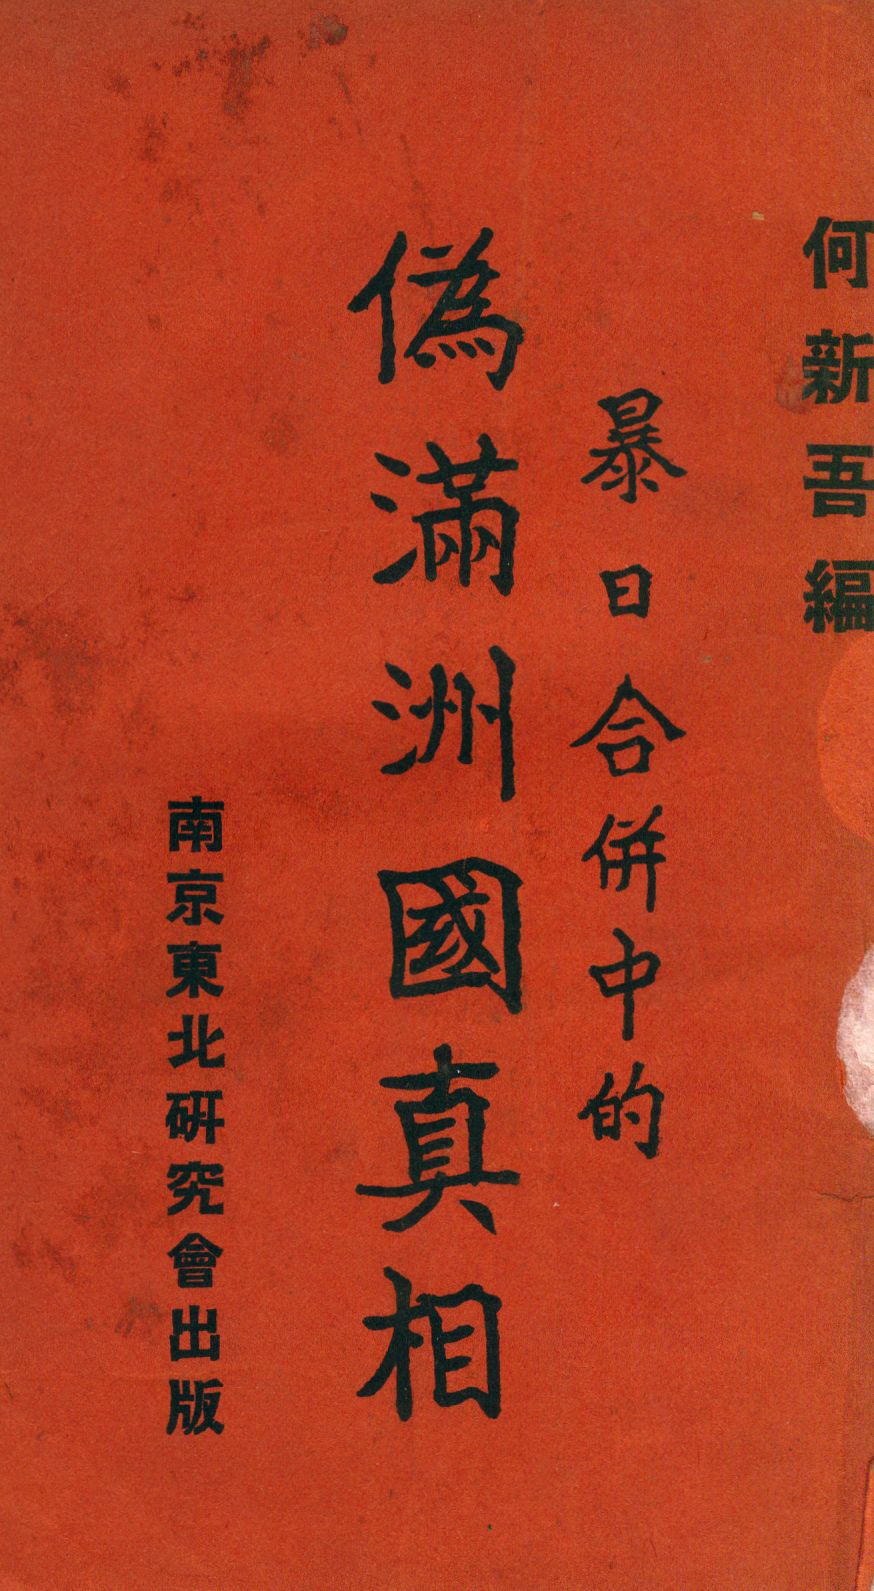 何新吾編
暴日合併中的
僞滿洲國真相
南京東北研究會出版